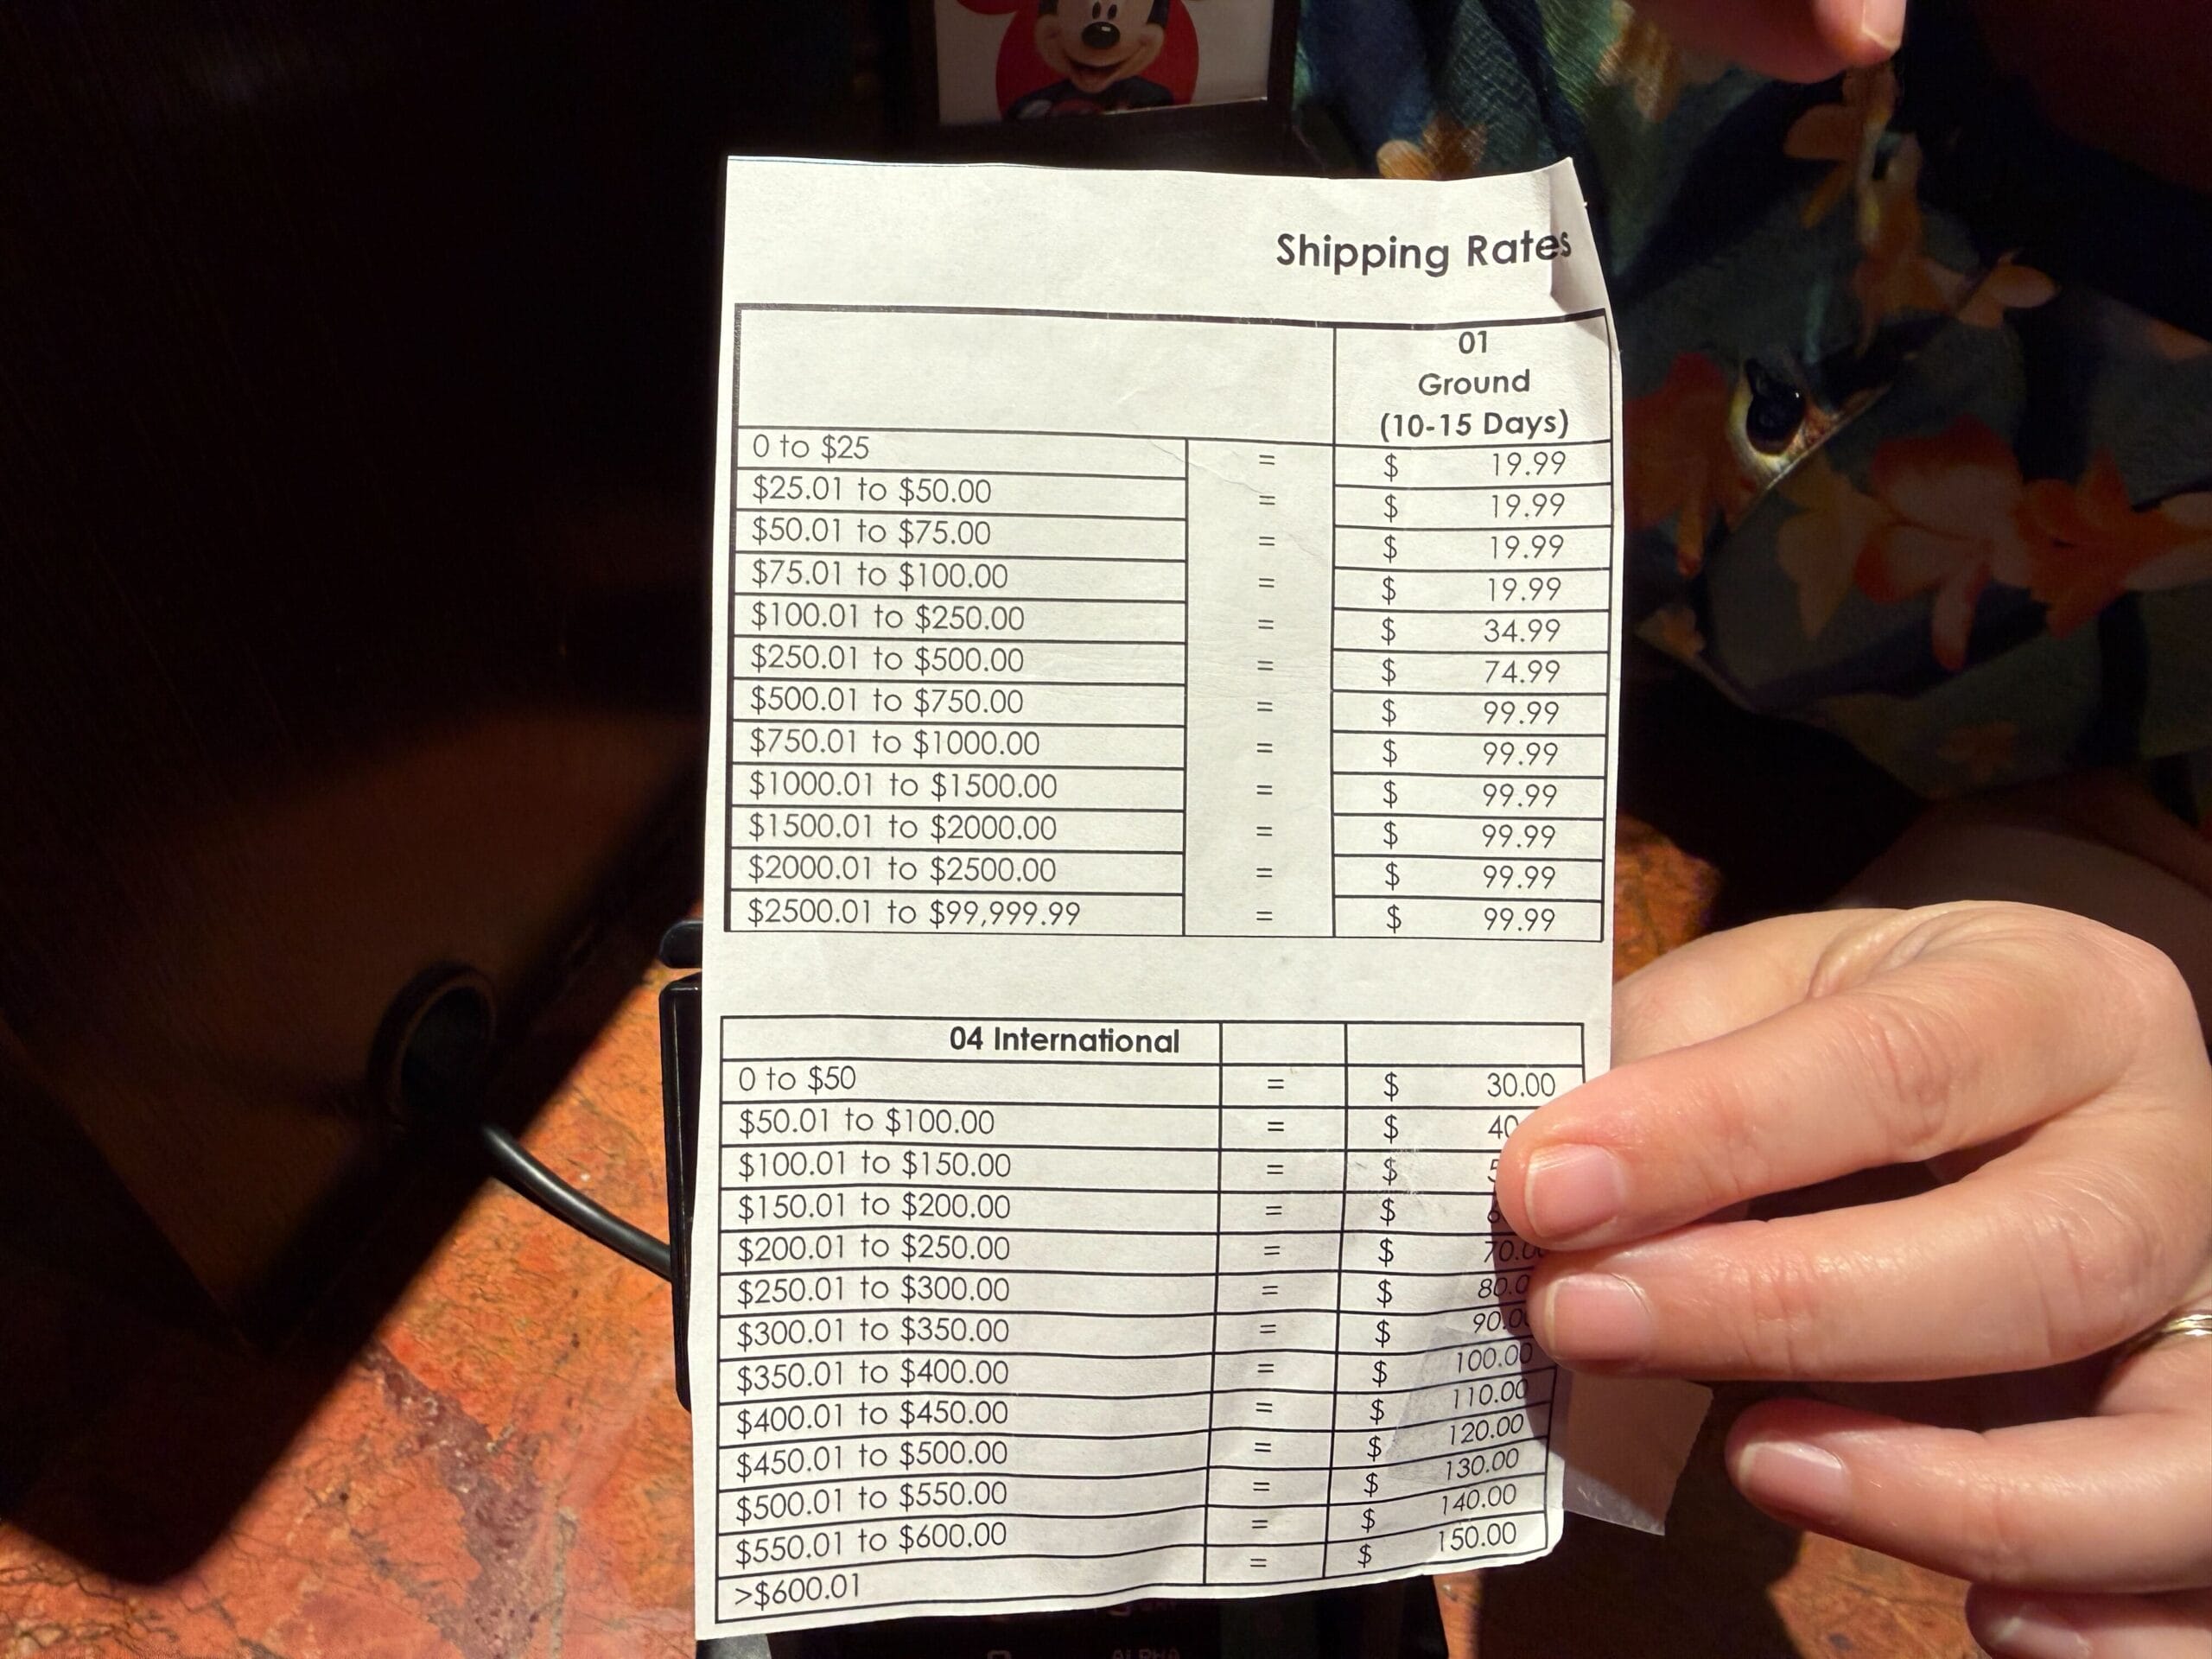 Shipping Rates
01
Ground
(10-15 Days)
0 to $25 = $ 19.99
$25.01 to $50.00 = $ 19.99
$50.01 to $75.00 = $ 19.99
$75.01 to $100.00 = $ 19.99
$100.01 to $250.00 = $ 34.99
$250.01 to $500.00 = $ 74.99
$500.01 to $750.00 = $ 99.99
$750.01 to $1000.00 = $ 99.99
$1000.01 to $1500.00 = $ 99.99
$1500.01 to $2000.00 = $ 99.99
$2000.01 to $2500.00 = $ 99.99
$2500.01 to $99,999.99 = $ 99.99
04 International
0 to $50 = $ 30.00
$50.01 to $100.00 = $ 40
$100.01 to $150.00 = $
$150.01 to $200.00 = $
$200.01 to $250.00 = $ 70.0
$250.01 to $300.00 = $ 80.0
$300.01 to $350.00 = $ 90.0
$350.01 to $400.00 = $ 100.00
$400.01 to $450.00 = $ 110.00
$450.01 to $500.00 = $ 120.00
$500.01 to $550.00 = $ 130.00
$550.01 to $600.00 = $ 140.00
>$600.01 = $ 150.00
ALPHA